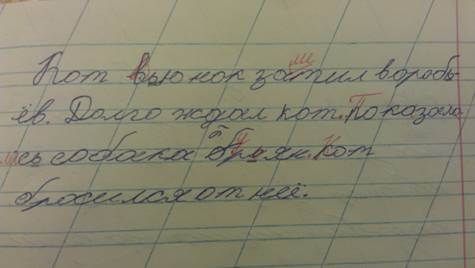 Кот вьюнок затмил воробь
ёв. Долго ждал кот. Показала
сь собака Буян. Кот
бросился от неё.